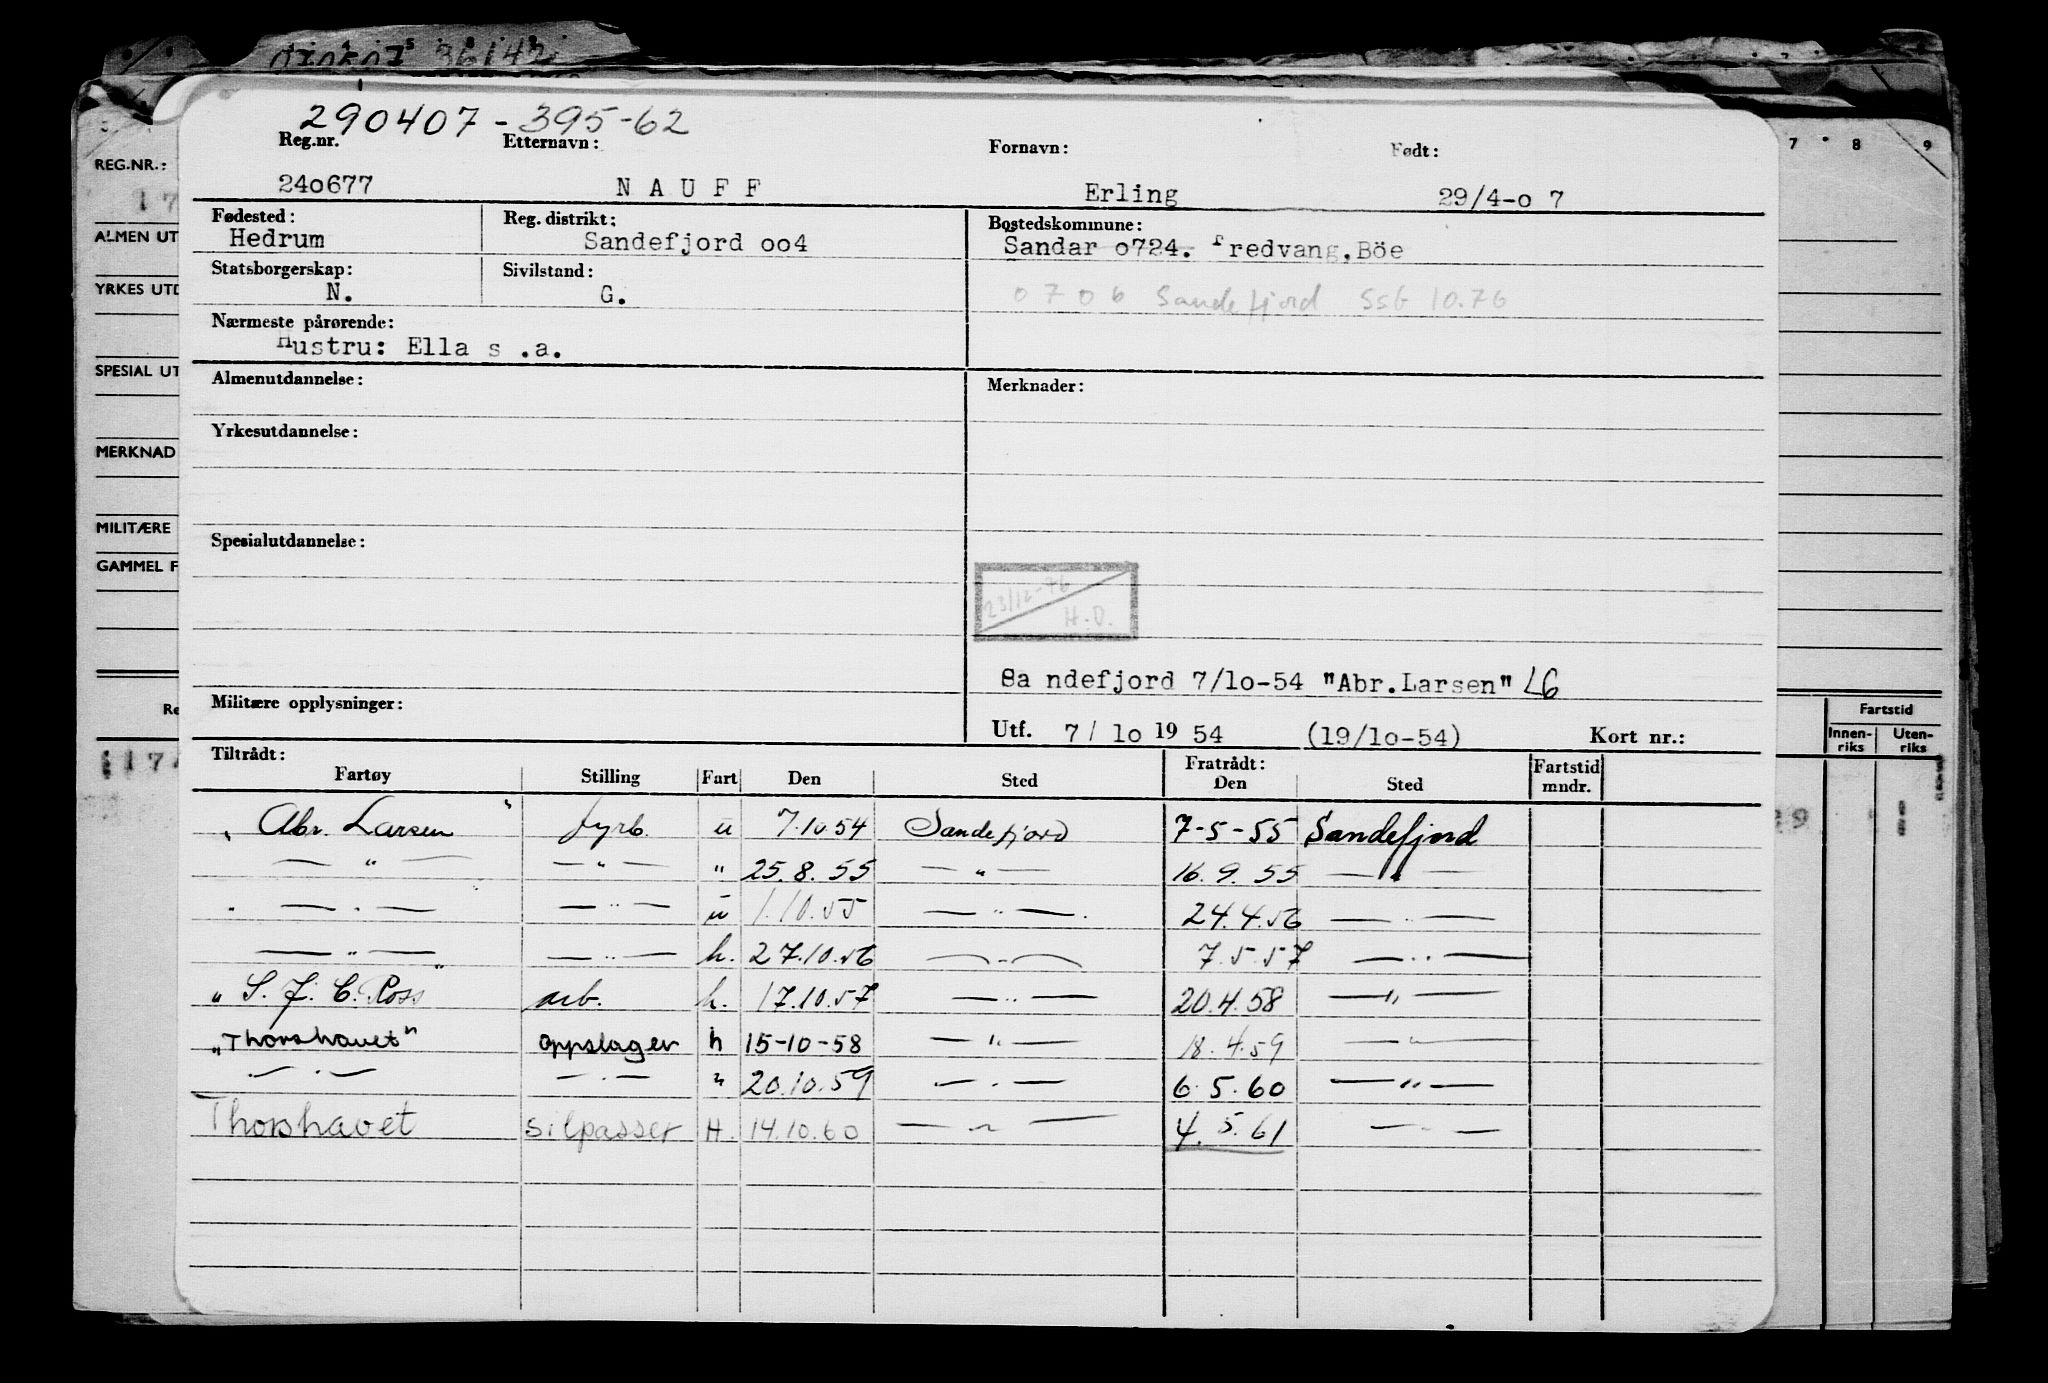 070507 36142
290407-395-62
Reg.nr. Etternavn: Fornavn: Født:
240677 NAUFF Erling 29/4-o 7
Fødested: Reg. distrikt: Bostedskommune:
Hedrum Sandefjord oo4 Sandar o724. Fredvang, Böe
Statsborgerskap: Sivilstand:
N. G.
0706 Sandefjord SSG 10.76
Nærmeste pårørende:
Hustru: Ella s .a.
Almenutdannelse: Merknader:
Yrkesutdannelse:
Spesialutdannelse:
23/12-76
H.O.
Sa ndefjord 7/1o-54 "Abr.Larsen" LG
Militære opplysninger:
Utf. 7/ 1o 19 54 (19/1o-54) Kort nr.:
Tiltrådt: Fratrådt:
Fartøy Stilling Fart Den Sted Den Sted Fartstid mndr.
"Abr. Larsen" fyrb. u 7.10.54 Sandefjord 7-5-55 Sandefjord
— " — — " — " 25.8.55 — " — 16.9.55 — " —
" — " — — " — u 1.10.55 — " — 24.4.56 — " —
— " — — " — h. 27.10.56 — " — 7.5.57 — " —
"S. J. C. Ross" arb. h. 17.10.57 — " — 20.4.58 — " —
"Thorshavet" oppslager h 15-10-58 — " — 18.4.59 — " —
— " — — " — " 20.10.59 — " — 6.5.60 — " —
Thorshavet Silpasser H. 14.10.60 — " — 4.5.61 — " —
REG.NR.:
17
ALMEN UT
YRKES UTD
SPESIAL UT
MERKNAD
MILITÆRE
GAMMEL F
Re
117
7 8 9
Fartstid
Innen-riks Uten-riks
29